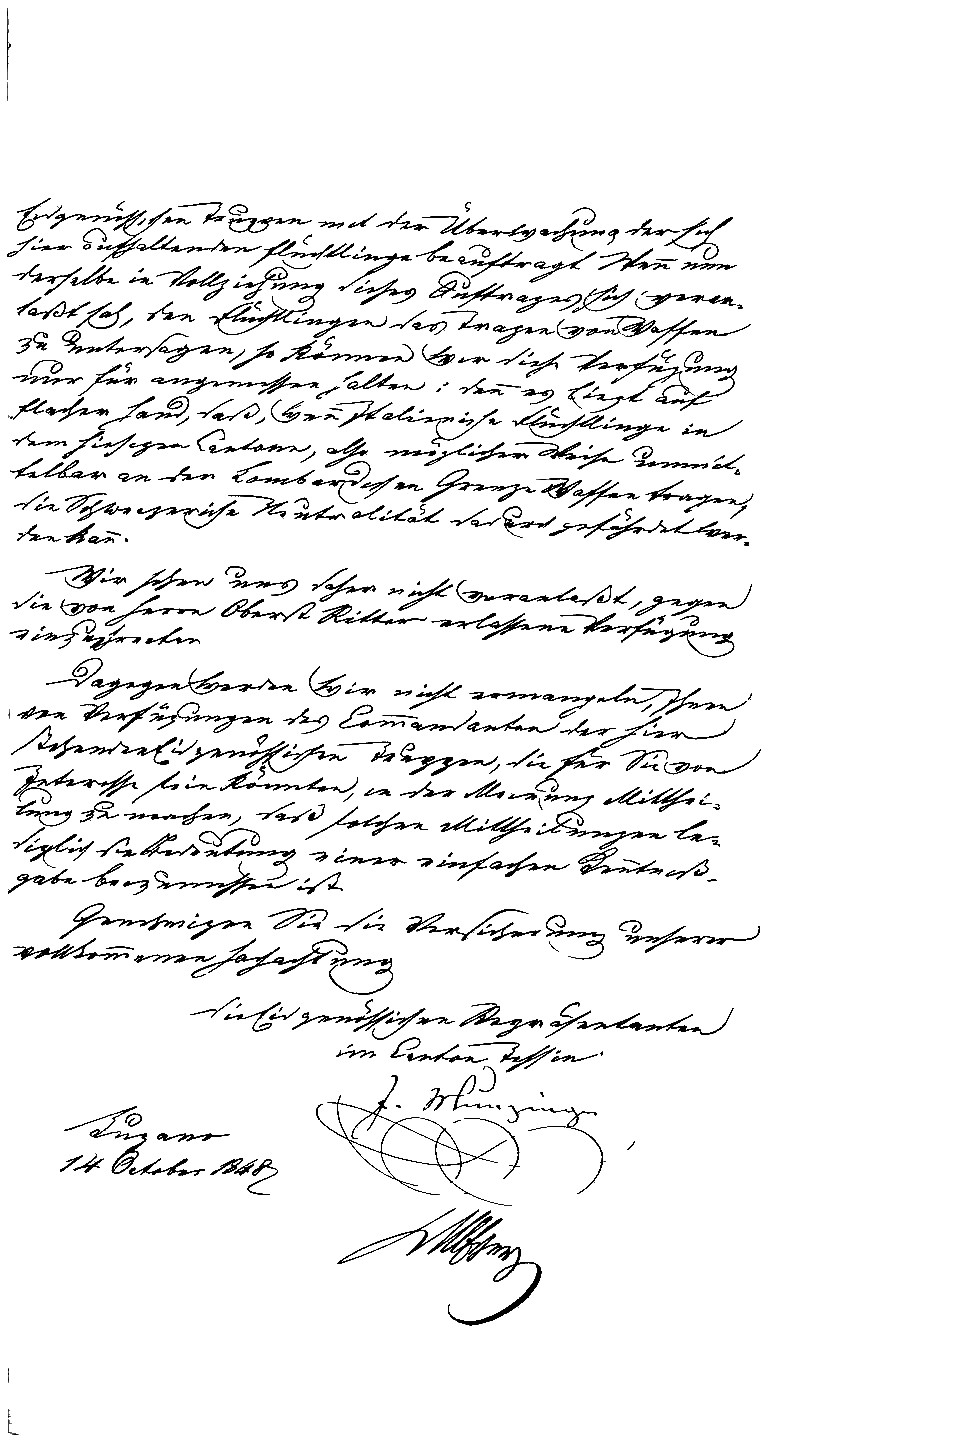 Eidgenössischen Truppen mit der Überwachung der sich
hier aufhaltenden Flüchtlinge beauftragt. Wenn nun
derselbe in Vollziehung dieses Auftrages sich veran-
laßt sah, den Flüchtlingen das Tragen von Waffen
zu untersagen, so können wir diese Verfügung
nur für angemessen halten: denn es liegt auf
flacher Hand, daß, wenn Italienische Flüchtlinge in
dem hiesigen Cantone, also möglicher Weise unmit-
telbar an der Lombardischen Grenze Waffen tragen,
die Schweizerische Neutralität dadurch gefährdet wer-
den kann.
Wir sehen uns daher nicht veranlaßt, gegen
die von Herrn Oberst Ritter erlassene Verfügung
einzuschreiten
Dagegen werden wir nicht ermangeln, Ihnen
von Verfügungen des Commandanten der hier
stehenden Eidgenössischen Truppen, die für Sie von
Interesse sein könnten, in der Meinung Mitthei-
lung zu machen, daß solchen Mittheilungen le-
diglich die Bedeutung einer einfachen Kenntniß-
gabe beizumessen ist.
Genehmigen Sie die Versicherung unserer
vollkommenen Hochachtung
die Eidgenössischen Repräsentanten
im Canton Tessin
J. Munzinger
Lugano
14 October 1848